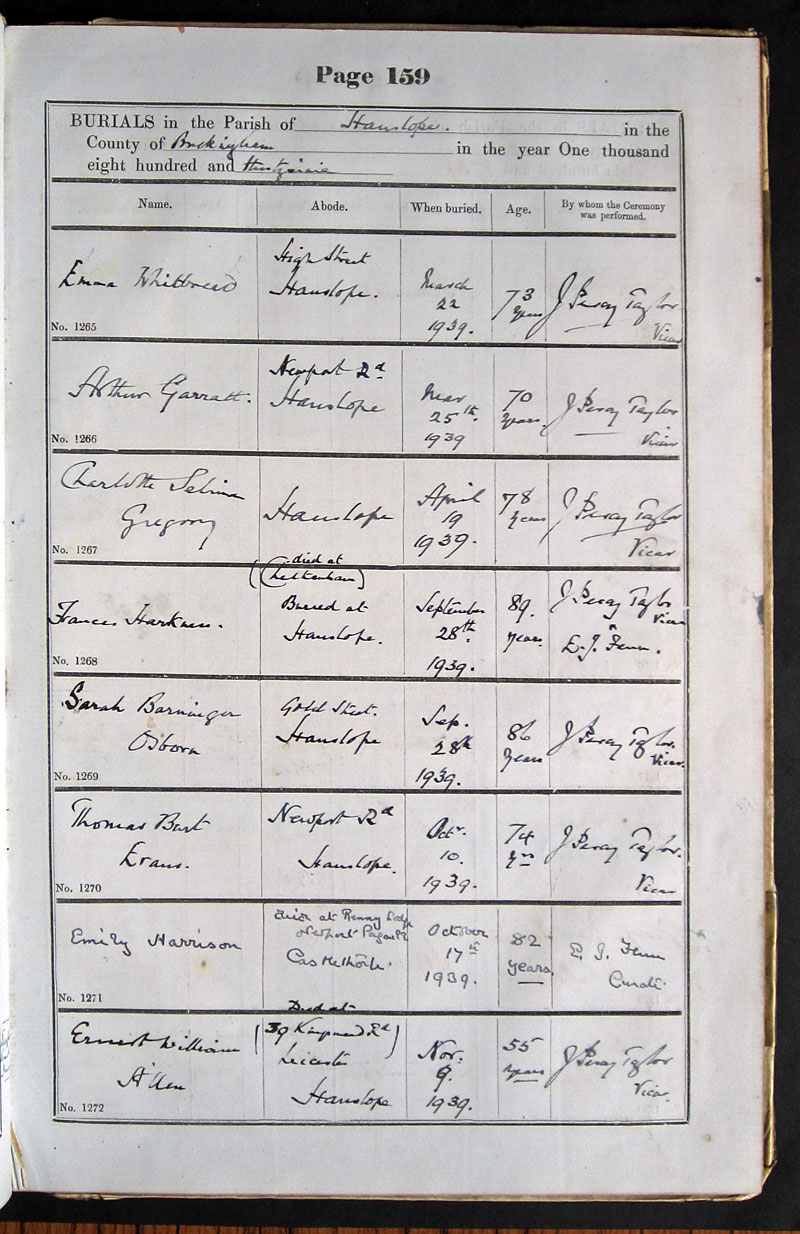 Page 159
BURIALS in the Parish of Hanslope. in the
County of Buckingham in the year One thousand
eight hundred and thirtynine
Name. Abode. When buried. Age. By whom the Ceremony was performed.
Emma Whitbread
No. 1265
High Street
Hanslope.
March
22
1939.
73
years
J Percy Taylor
Vicar
Arthur Garratt.
No. 1266
Newport Rd
Hanslope
Mar
25th.
1939
70
years.
J Percy Taylor
Vicar
Charlotte Selina
Gregory
No. 1267
Hanslope
April
19
1939.
78
years
J Percy Taylor
Vicar
Frances Harkness.
No. 1268
died at
(Cheltenham)
Buried at
Hanslope.
September
28th.
1939.
89.
years.
J Percy Taylor
Vicar
E. J. Fenn.
Sarah Barninger
Osborn
No. 1269
Gold Street.
Hanslope
Sep.
28th
1939.
86
years
J Percy Taylor.
Vicar.
Thomas Bart
Evans.
No. 1270
Newport Rd
Hanslope.
Octr.
10.
1939.
74
yrs
J Percy Taylor.
Vicar
Emily Harrison
No. 1271
died at Renny Lodge
Newport Pagnell
Castlethorpe
October
17th
1939.
82
years.
E. J. Fenn
Curate.
Ernest William
Allen
No. 1272
Died at
(39 Rd)
Leicester
Hanslope
Nov.
9.
1939.
55
years
J Percy Taylor
Vicar.